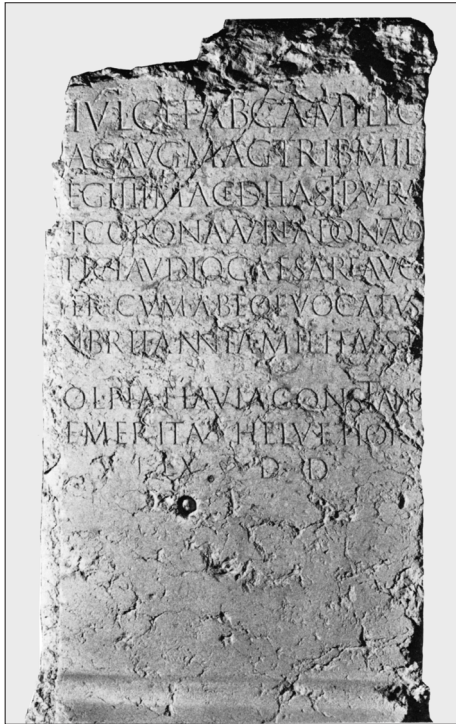 IVL C F FAB CAMILLO
AC AVG MAG TRIB MIL
EG IIII MACED HAST PVRA
ET CORONA AVREA DONATO
TI CLAVDIO CAESARE AVG
TER CVM AB EO EVOCATVS
N BRITANNIA MILITASSE
OL PIA FLAVIA CONSTANS
EMERITA HELVETIOR
EX D D